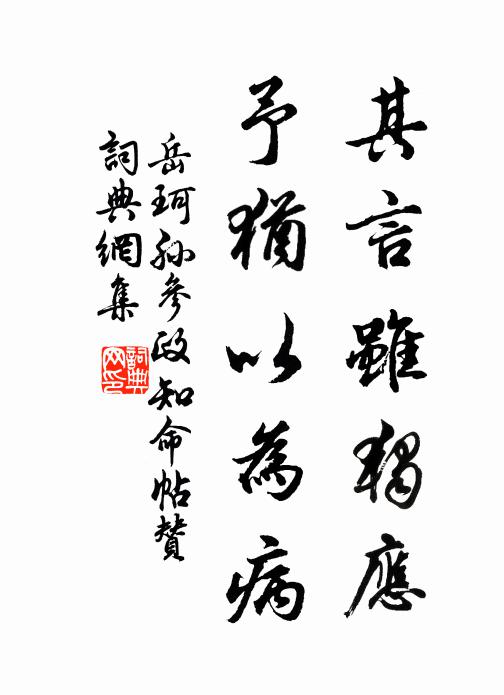 其言雖獨應
予猶以為病
岳珂孫參政知命帖贊
詞典網集
詞典網印